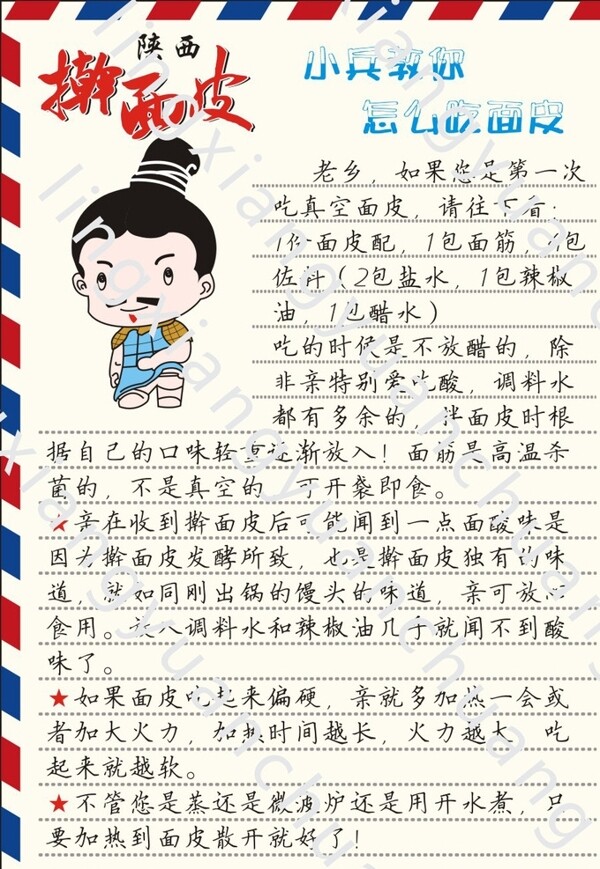 陕西
擀面皮
小兵教你
怎么吃面皮
老乡，如果您是第一次
吃真空面皮，请往下看：
1份面皮配，1包面筋，4包
佐料（2包盐水，1包辣椒
油，1包醋水）
吃的时候是不放醋的，除
非亲特别爱吃酸，调料水
都有多余的，拌面皮时根
据自己的口味轻重逐渐放入！面筋是高温杀
菌的，不是真空的 可开袋即食。
★亲在收到擀面皮后可能闻到一点面酸味是
因为擀面皮发酵所致，也是擀面皮独有的味
道，就如同刚出锅的馒头的味道，亲可放心
食用。放入调料水和辣椒油几乎就闻不到酸
味了。
★如果面皮吃起来偏硬，亲就多加热一会或
者加大火力，加热时间越长，火力越大 吃
起来就越软。
★不管您是蒸还是微波炉还是用开水煮，只
要加热到面皮散开就好了！
lingxiangyuanchuang
lingxiangyuanchuang